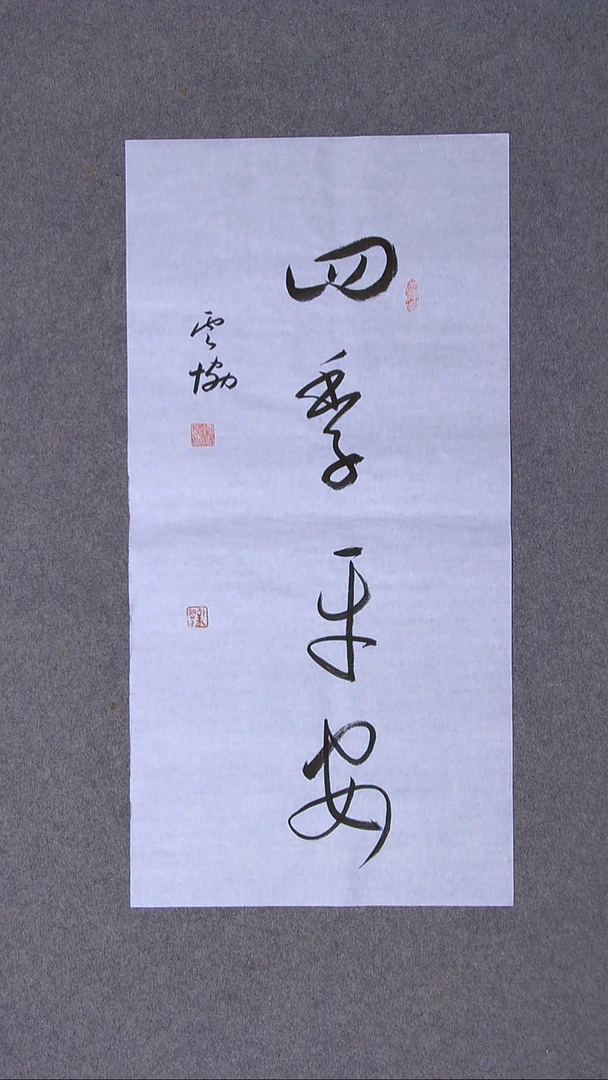 四季平安
雲協